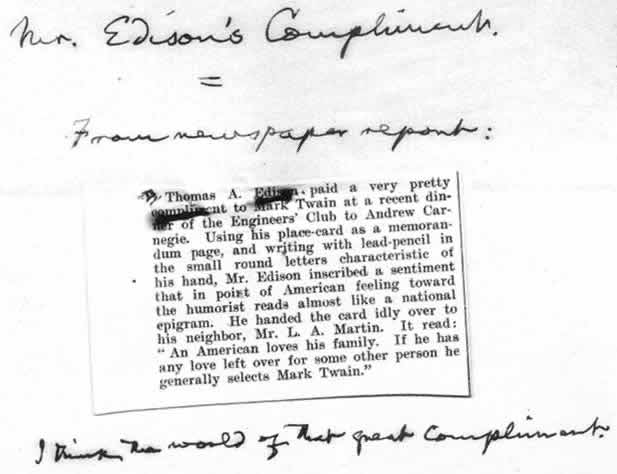 Mr. Edison's Compliment.
=
From newspaper report:
Thomas A. Edison paid a very pretty
compliment to Mark Twain at a recent din-
ner of the Engineers' Club to Andrew Car-
negie. Using his place-card as a memoran-
dum page, and writing with lead-pencil in
the small round letters characteristic of
his hand, Mr. Edison inscribed a sentiment
that in point of American feeling toward
the humorist reads almost like a national
epigram. He handed the card idly over to
his neighbor, Mr. L. A. Martin. It read:
"An American loves his family. If he has
any love left over for some other person he
generally selects Mark Twain."
I think the world of that great compliment.